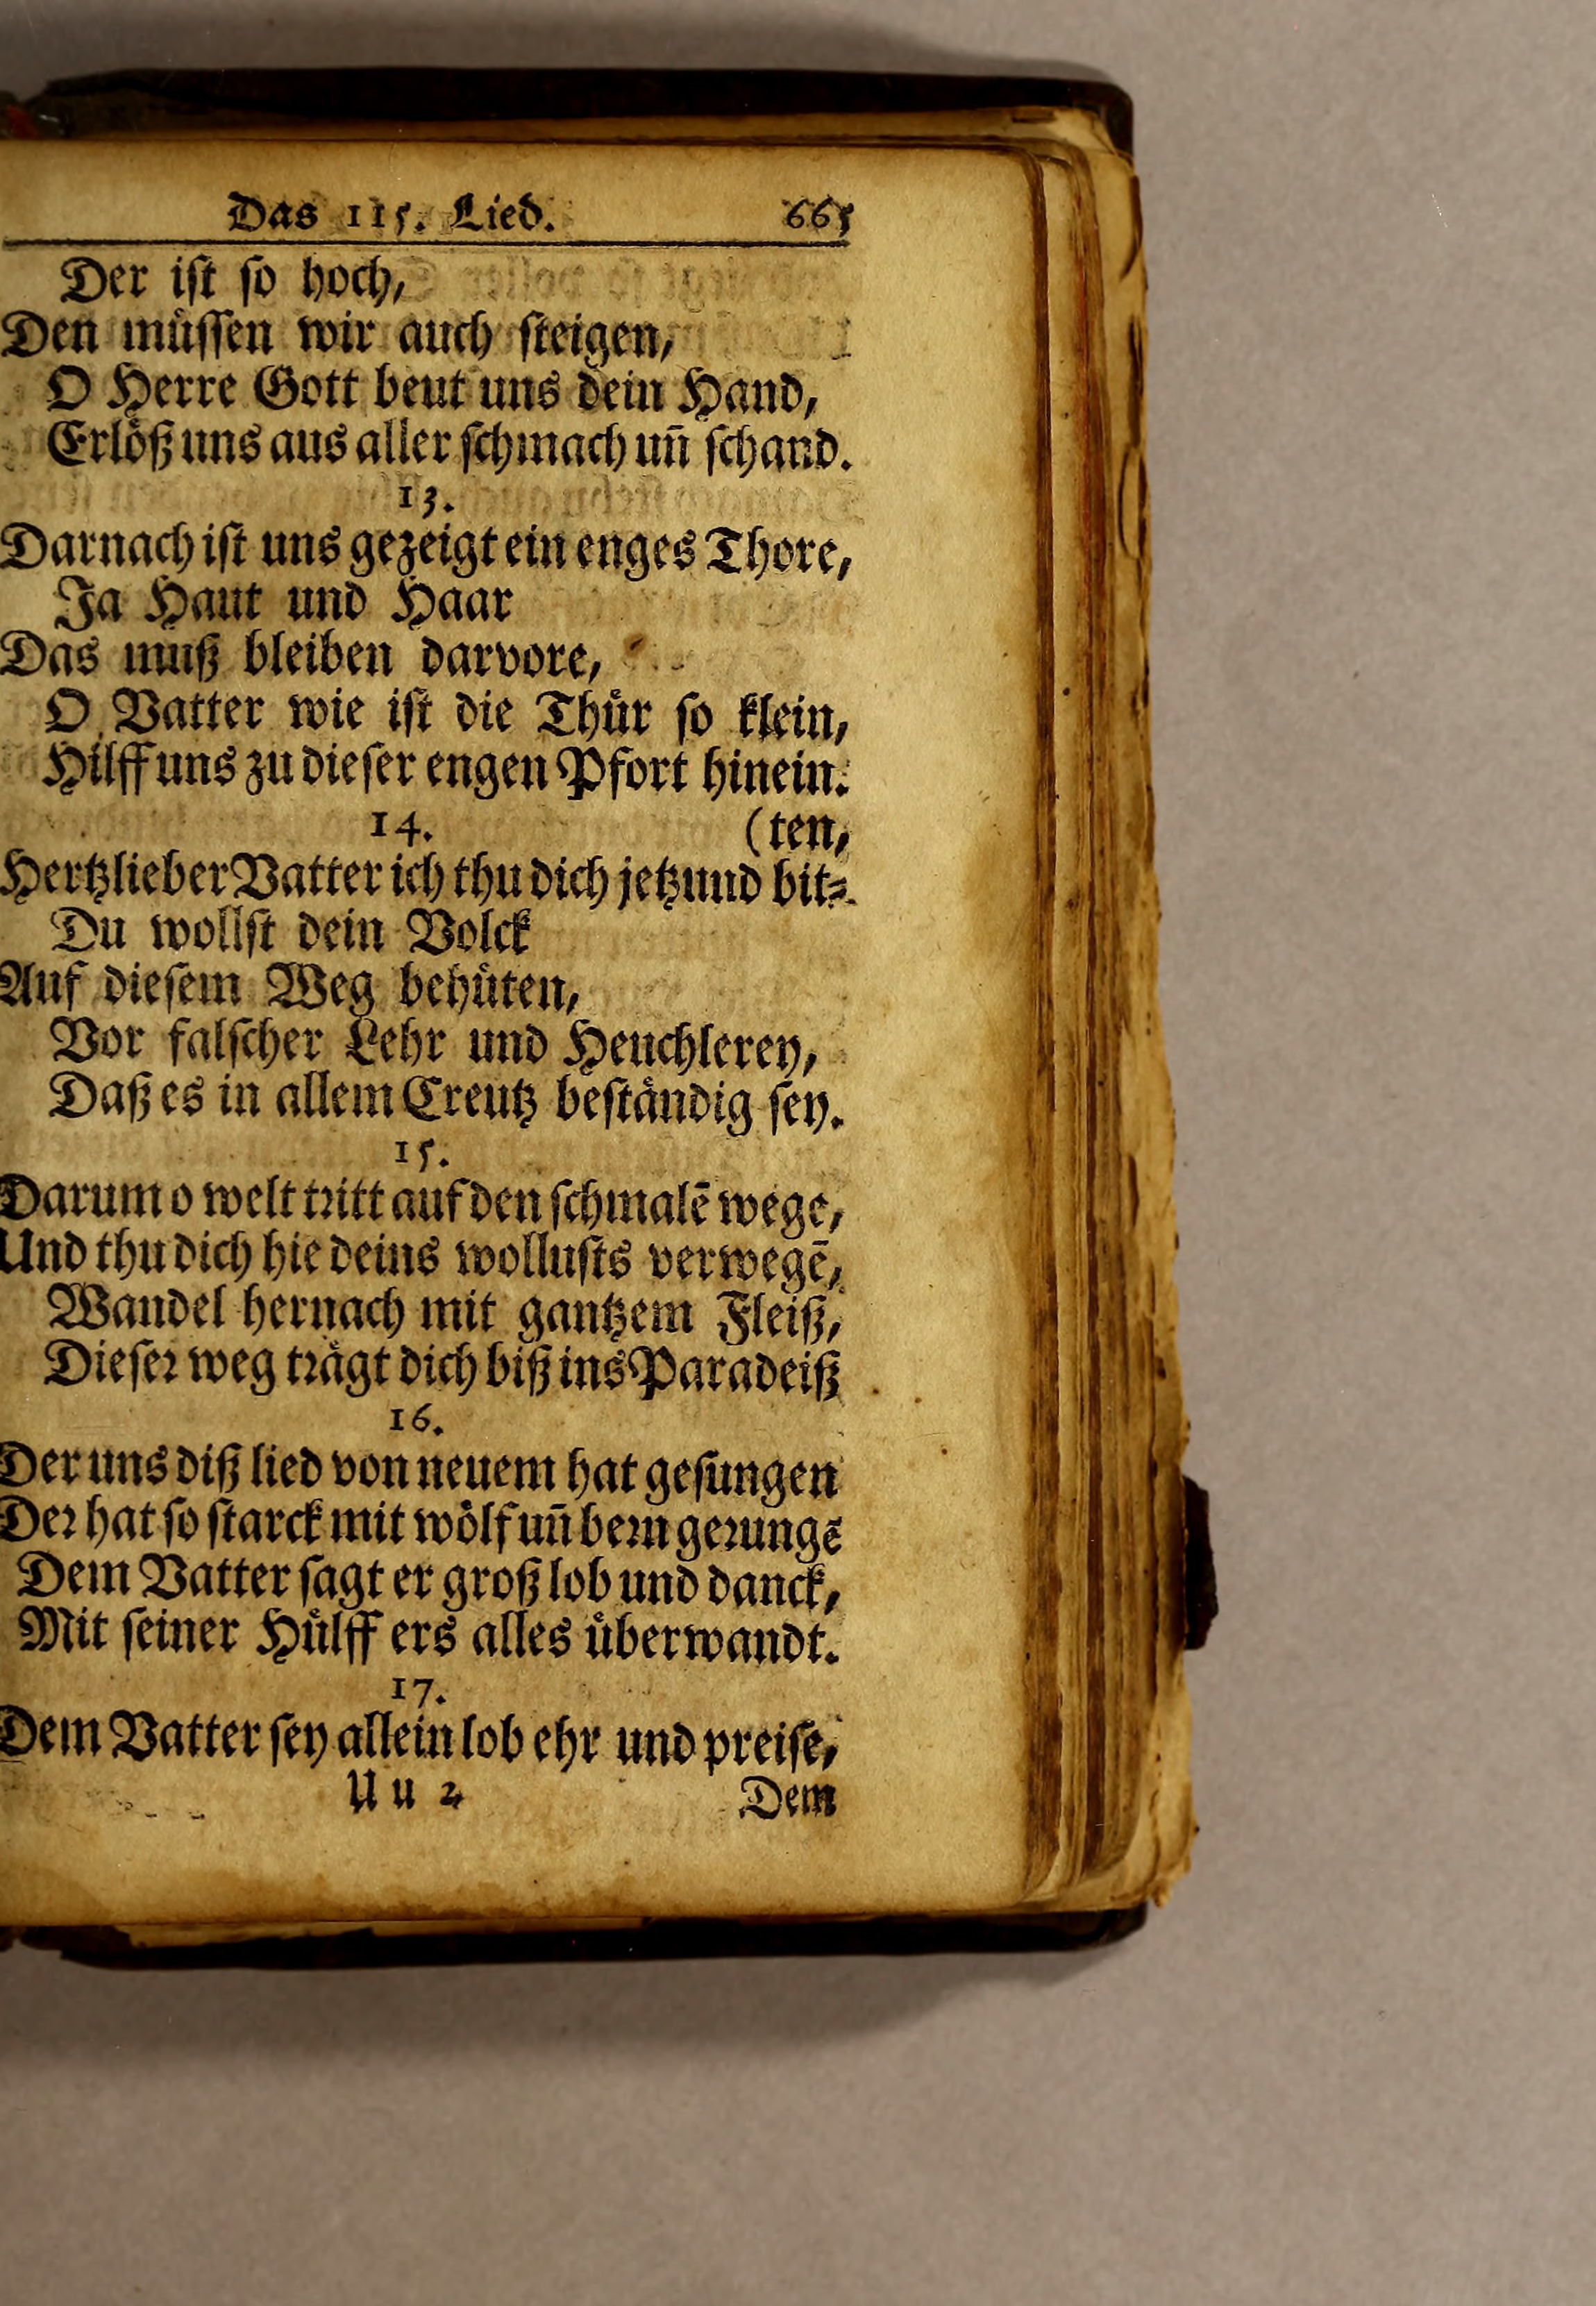 Das 115. Lied. 665
Der iſt ſo hoch,
Den muͤſſen wir auch ſteigen,
O Herre Gott beut uns dein Hand,
Erloͤß uns aus aller ſchmach un̄ ſchand.
13.
Darnach iſt uns gezeigt ein enges Thore,
Ja Haut und Haar
Das muß bleiben darvore,
O Vatter wie iſt die Thuͤr ſo klein,
Hilff uns zu dieſer engen Pfort hinein.
14. (ten,
Hertzlieber Vatter ich thu dich jetzund bit⸗
Du wollſt dein Volck
Auf dieſem Weg behuͤten,
Vor falſcher Lehr und Heuchlerey,
Daß es in allem Creutz beſtaͤndig ſey.
15.
Darum o welt tꝛitt auf den ſchmalē wege,
Und thu dich hie deins wolluſts verwegē,
Wandel hernach mit gantzem Fleiß,
Dieſeꝛ weg tꝛaͤgt dich biß ins Paradeiß
16.
Der uns diß lied von neuem hat geſungen
Deꝛ hat ſo ſtarck mit woͤlf un̄ beꝛn geꝛungē
Dem Vatter ſagt er groß lob und danck,
Mit ſeiner Huͤlff ers alles uͤberwandt.
17.
Dem Vatter ſey allein lob ehr und preiſe,
U u 2 Dem